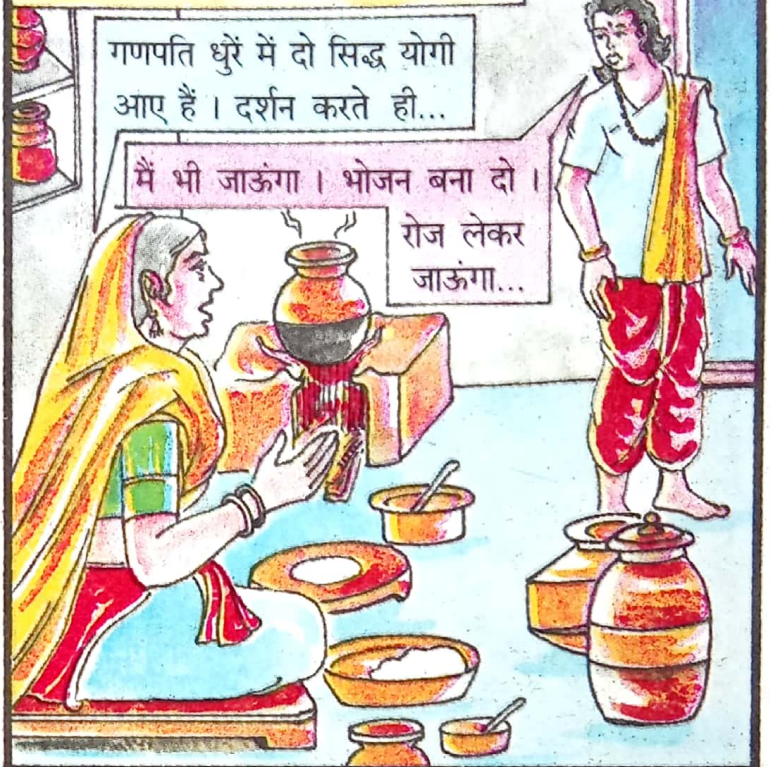 गणपति धुरें में दो सिद्ध योगी
आए हैं । दर्शन करते ही...
मैं भी जाऊंगा । भोजन बना दो ।
रोज लेकर
जाऊंगा...